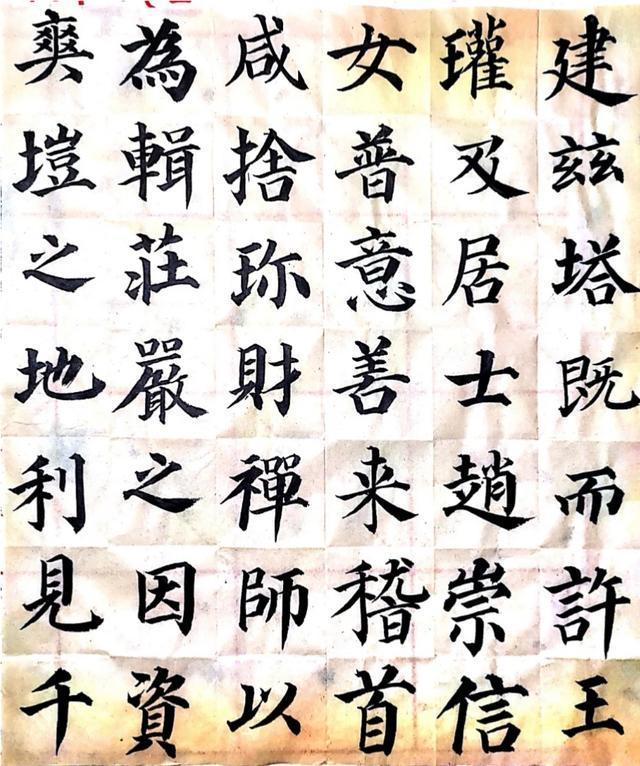 建兹塔既而許王
瓘及居士趙崇信
女普意善来稽首
咸捨珎財禪師以
為輯莊嚴之因資
爽塏之地利見千